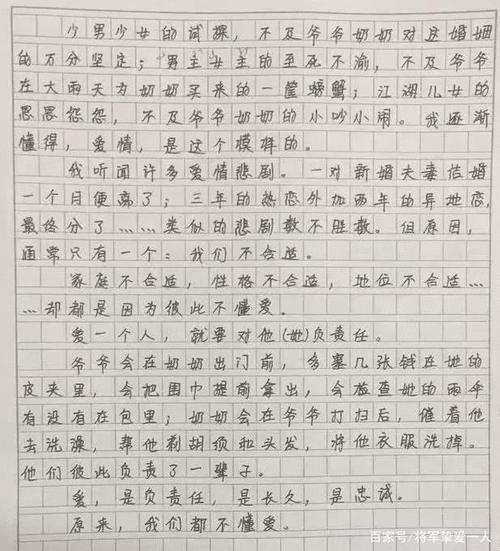 少男少女的试探，不及爷爷奶奶对这婚姻
的万分坚定；男主女主的至死不渝，不及爷爷
在大雨天为奶奶买来的一筐螃蟹；江湖儿女的
恩恩怨怨，不及爷爷奶奶的小吵小闹。我逐渐
懂得，爱情，是这个模样的。
我听闻许多爱情悲剧。一对新婚夫妻结婚
一个月便离了；三年的热恋外加两年的异地恋，
最终分了……类似的悲剧数不胜数。但原因，
通常只有一个：我们不合适。
家庭不合适，性格不合适，地位不合适…
…却都是因为彼此不懂爱。
爱一个人，就要对他(她)负责任。
爷爷会在奶奶出门前，多塞几张钱在她的
皮夹里，会把围巾提前拿出，会检查她的雨伞
有没有在包里；奶奶会在爷爷打扫后，催着他
去洗澡，帮他剃胡须和头发，将他衣服洗掉。
他们彼此负责了一辈子。
爱，是负责任，是长久，是忠诚。
原来，我们都不懂爱。
百家号/将军挚爱一人